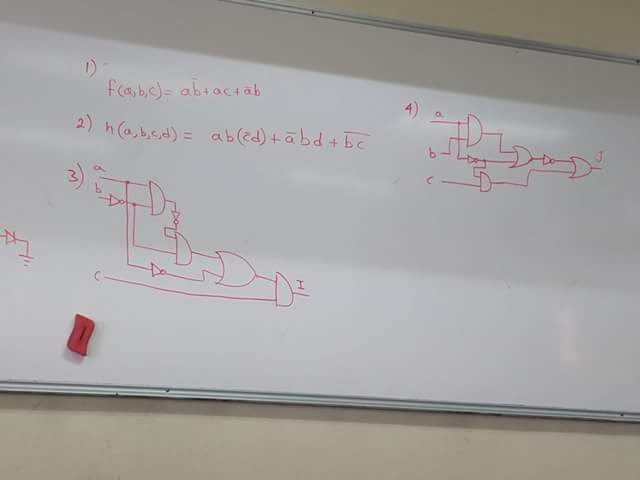 1)
f(a,b,c) = ab̄ + ac + āb
2) h(a,b,c,d) = ab(c̄d) + ābd + b̅c̅
3) a
b
c
I
4) a
b
c
J